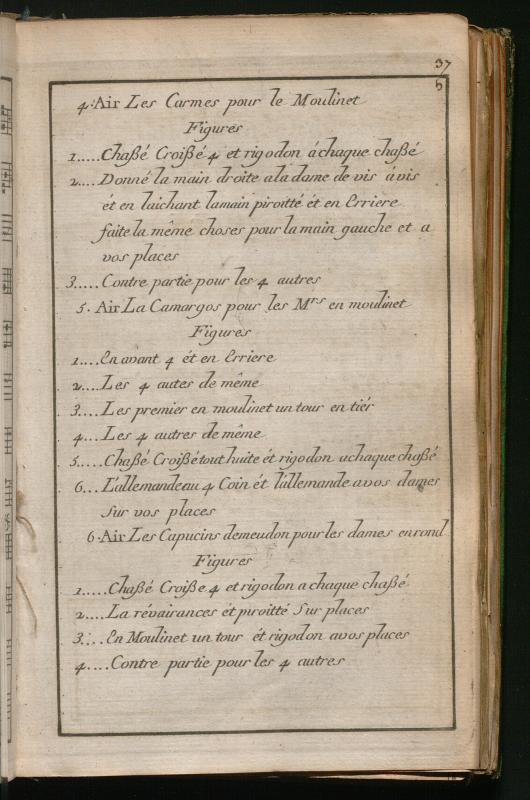 37
5
4. Air Les Carmes pour le Moulinet
Figures
1..... Chaßé Croißé 4 et rigodon á chaque chaßé
2.... Donné la main droite a la dame de vis á vis
ét en laichant la main piroitté ét en Erriere
faite la même choses pour la main gauche et a
vos places
3..... Contre partie pour les 4 autres
5. Air La Camargos pour les Mrs en moulinet
Figures
1.... En avant 4 ét en Erriere
2.... Les 4 autes de même
3.... Les premier en moulinet un tour en tiér
4.... Les 4 autres de même
5..... Chaßé Croißé tout huite ét rigodon a chaque chaßé
6... L'allemande au 4 Coin ét l'allemande a vos dames
sur vos places
6. Air Les Capucins demeudon pour les dames en rond
Figures
1..... Chaßé Croiße 4 et rigodon a chaque chaßé
2.... La révairances ét piroitté sur places
3.... En Moulinet un tour ét rigodon a vos places
4.... Contre partie pour les 4 autres